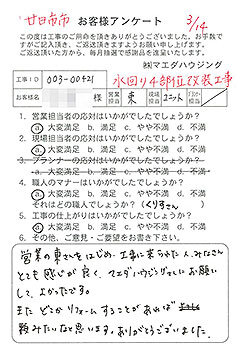 廿日市市 お客様アンケート 3/14
この度は工事のご用命を頂きありがとうございました。お手数で
すがご記入頂き、ご返送頂きますようお願い申し上げます。
ご返送頂いた方から、毎月抽選で感謝品を進呈いたします。
㈱マエダハウジング
工事ID 003-00421 水回り4部位改装工事
お客様名 様 営業担当 東 現場担当
1. 営業担当者の応対はいかがでしたでしょうか?
a.大変満足 b.満足 c.やや不満 d.不満
2. 現場担当者の応対はいかがでしたでしょうか?
a.大変満足 b.満足 c.やや不満 d.不満
3. プランナーの応対はいかがでしたでしょうか?
a.大変満足 b.満足 c.やや不満 d.不満
4. 職人のマナーはいかがでしたでしょうか?
a.大変満足 b.満足 c.やや不満 d.不満
それはどの職人でしょうか?(くりすさん)
5. 工事の仕上がりはいかがでしたでしょうか?
a.大変満足 b.満足 c.やや不満 d.不満
6. その他、ご意見・ご要望をお書き下さい。
営業の東さんをはじめ、工事に来られた人、みなさん
とても感じが良く、マエダハウジングさんにお願い
して、よかったです。
また どこかリフォームすることがあれば
頼みたいなと思います。ありがとうございました。